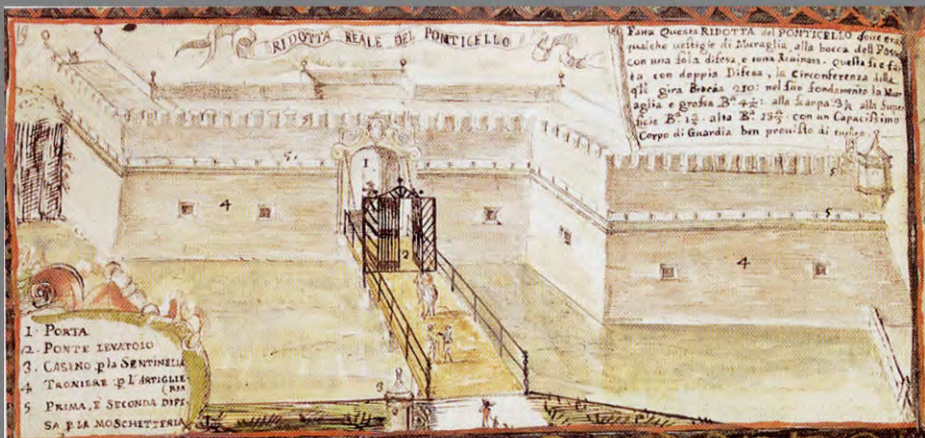 19
RIDOTTA REALE DEL PONTICELLO
Questa RIDOTTA del PONTICELLO doue era
qualche uestigie di Muraglia, alla bocca dell
con una sola difesa, e Questa si e fa
ta con doppia Difesa, la Circonferenza della
gira 250: nel suo fondamento la Mur
aglia e grossa Bª 4½: alla scarpa 3¼ alla Super
ficie Bª 1½. alta Bª con un Capacissimo
Corpo di Guardia ben prouisto di
1
5
5
4
5
2
4
3
1. PORTA
2. PONTE LEVATOIO
3. CASINO p la SENTINELLA
4 TRONIERE p L'ARTIGLIE
RIA
5 PRIMA, E SECONDA DIFE-
SA P LA MOSCHETTERIA